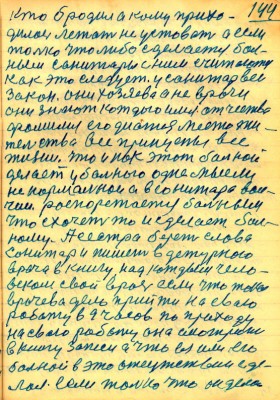 144
Кто бродил а кому прихо-
дилос летат не устават а если
толко что либо сделает у бол-
ных санитары с ними считают
как это следует. у санитар все
закон. они хозяева не врачи
они знают каждого имя отчества
фамилия его диагноз место жи-
телства все принцепы все
жизни. что и как этот болной
делает у болного одне мысли
не нормалной а в санитара
распоретается болным
что схочет то и сделает бол-
ному. А сестра берет слова
санитара и пишет в дежурного
врача в книгу над каждым чело-
веком свой врач если что то
врачева дело прийти на сваю
работу в 9 часов по приходу
на свою работу она смотрит
в книгу записи а что его
болной в это отсутствии сде-
лал. если толко что он дела